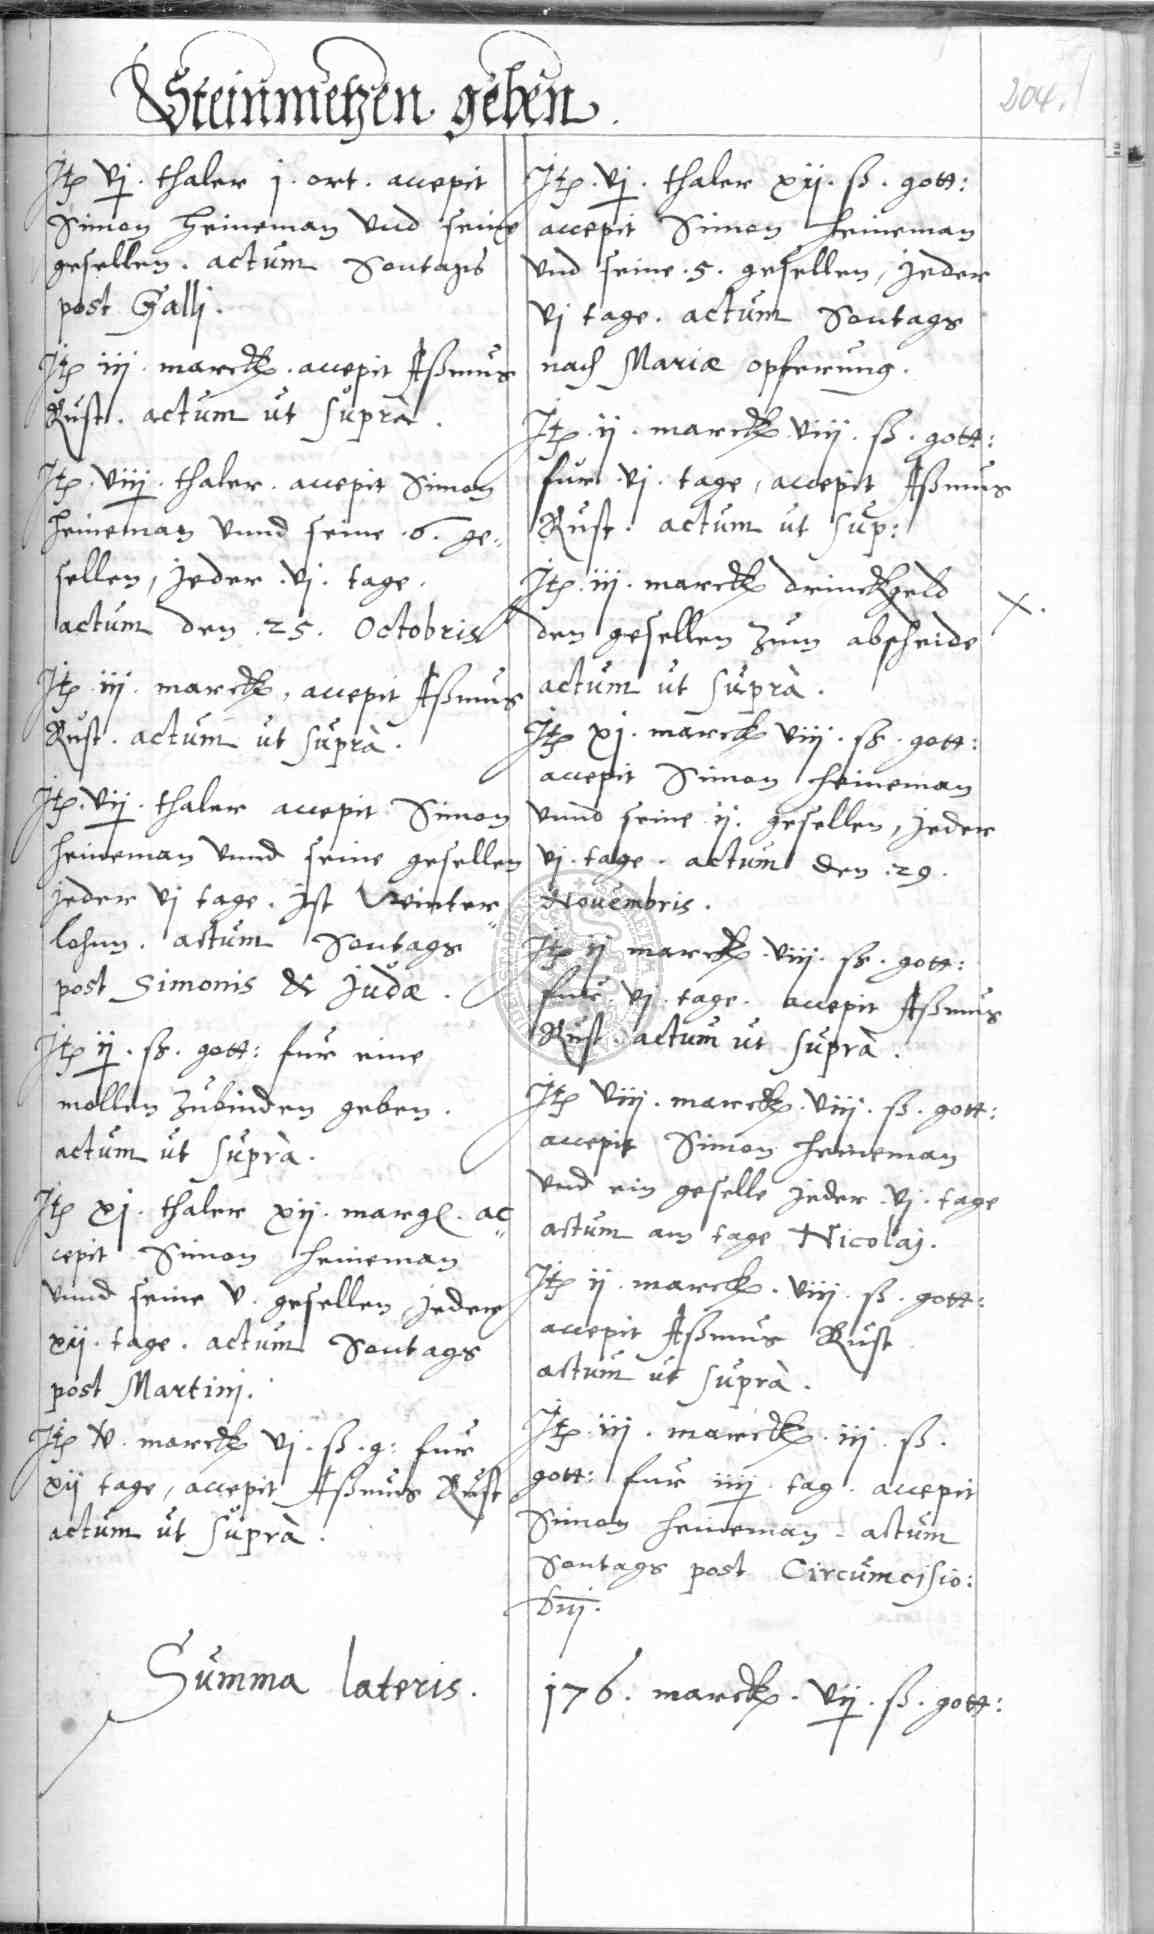 Steinmetzen geben.
204.
Itē vj. thaler j. ort. accepit
Simon Heineman vnd seine
gesellen. actum Sontags
post Galli.
Itē iij. marck. accepit Aßmus
Rust. actum ut suprà.
Itē. viij. thaler. accepit Simon
Heineman vnnd seine .6. ge„
sellen, jeder .vj. tage.
actum den .25. Octobris
Itē iij. marck, accepit Aßmus
Rust. actum ut suprà.
Itē. vij. thaler accepit Simon
Heineman vnnd seine gesellen
jeder vj tage. ist Winter„
lohnn. actum Sontags
post Simonis & Judæ.
Itē ij. ß. gott: fur eine
mollen zubinden geben.
actum ut suprà.
Itē xj. thaler xij. margl. ac„
cepit Simon Heineman
vnnd seine v. gesellen jeder
xij. tage. actum Sontags
post Martinj.
Itē v. marck vj. ß. g: fur
xij tage, accepit Aßmus Rust
actum ut suprà.
Itē. vj. thaler xij. ß. gott:
accepit Simon Heineman
vnd seine .5. gesellen, jeder
vj tage. actum Sontags
nach Mariæ opferung.
Itē. ij. marck viij. ß. gott:
fur vj. tage, accepit Aßmus
Rust. actum ut sup:
Itē. iij. marck drinckgeld
den gesellen zum abscheide
actum ut suprà.
x.
Itē xj. marck viij. ß. gott:
accepit Simon Heineman
vnnd seine ij. gesellen, jeder
vj. tage. actum den .29.
Nouembris.
Itē ij marck. viij. ß. gott:
fur. vj. tage. accepit Aßmus
Rust. actum ut suprà.
Itē viij. marck. viij. ß. gott:
accepit Simon Heineman
vnd ein geselle jeder vj. tage
actum am tage Nicolaj.
Itē ij. marck. viij. ß. gott:
accepit Aßmus Rust
actum ut suprà.
Itē. iij. marck. iij. ß.
gott: fur iiij. tag. accepit
Simon Heineman. actum
Sontags post Circumcisio:
dnj.
Summa lateris. 176. marck. vij. ß. gott: